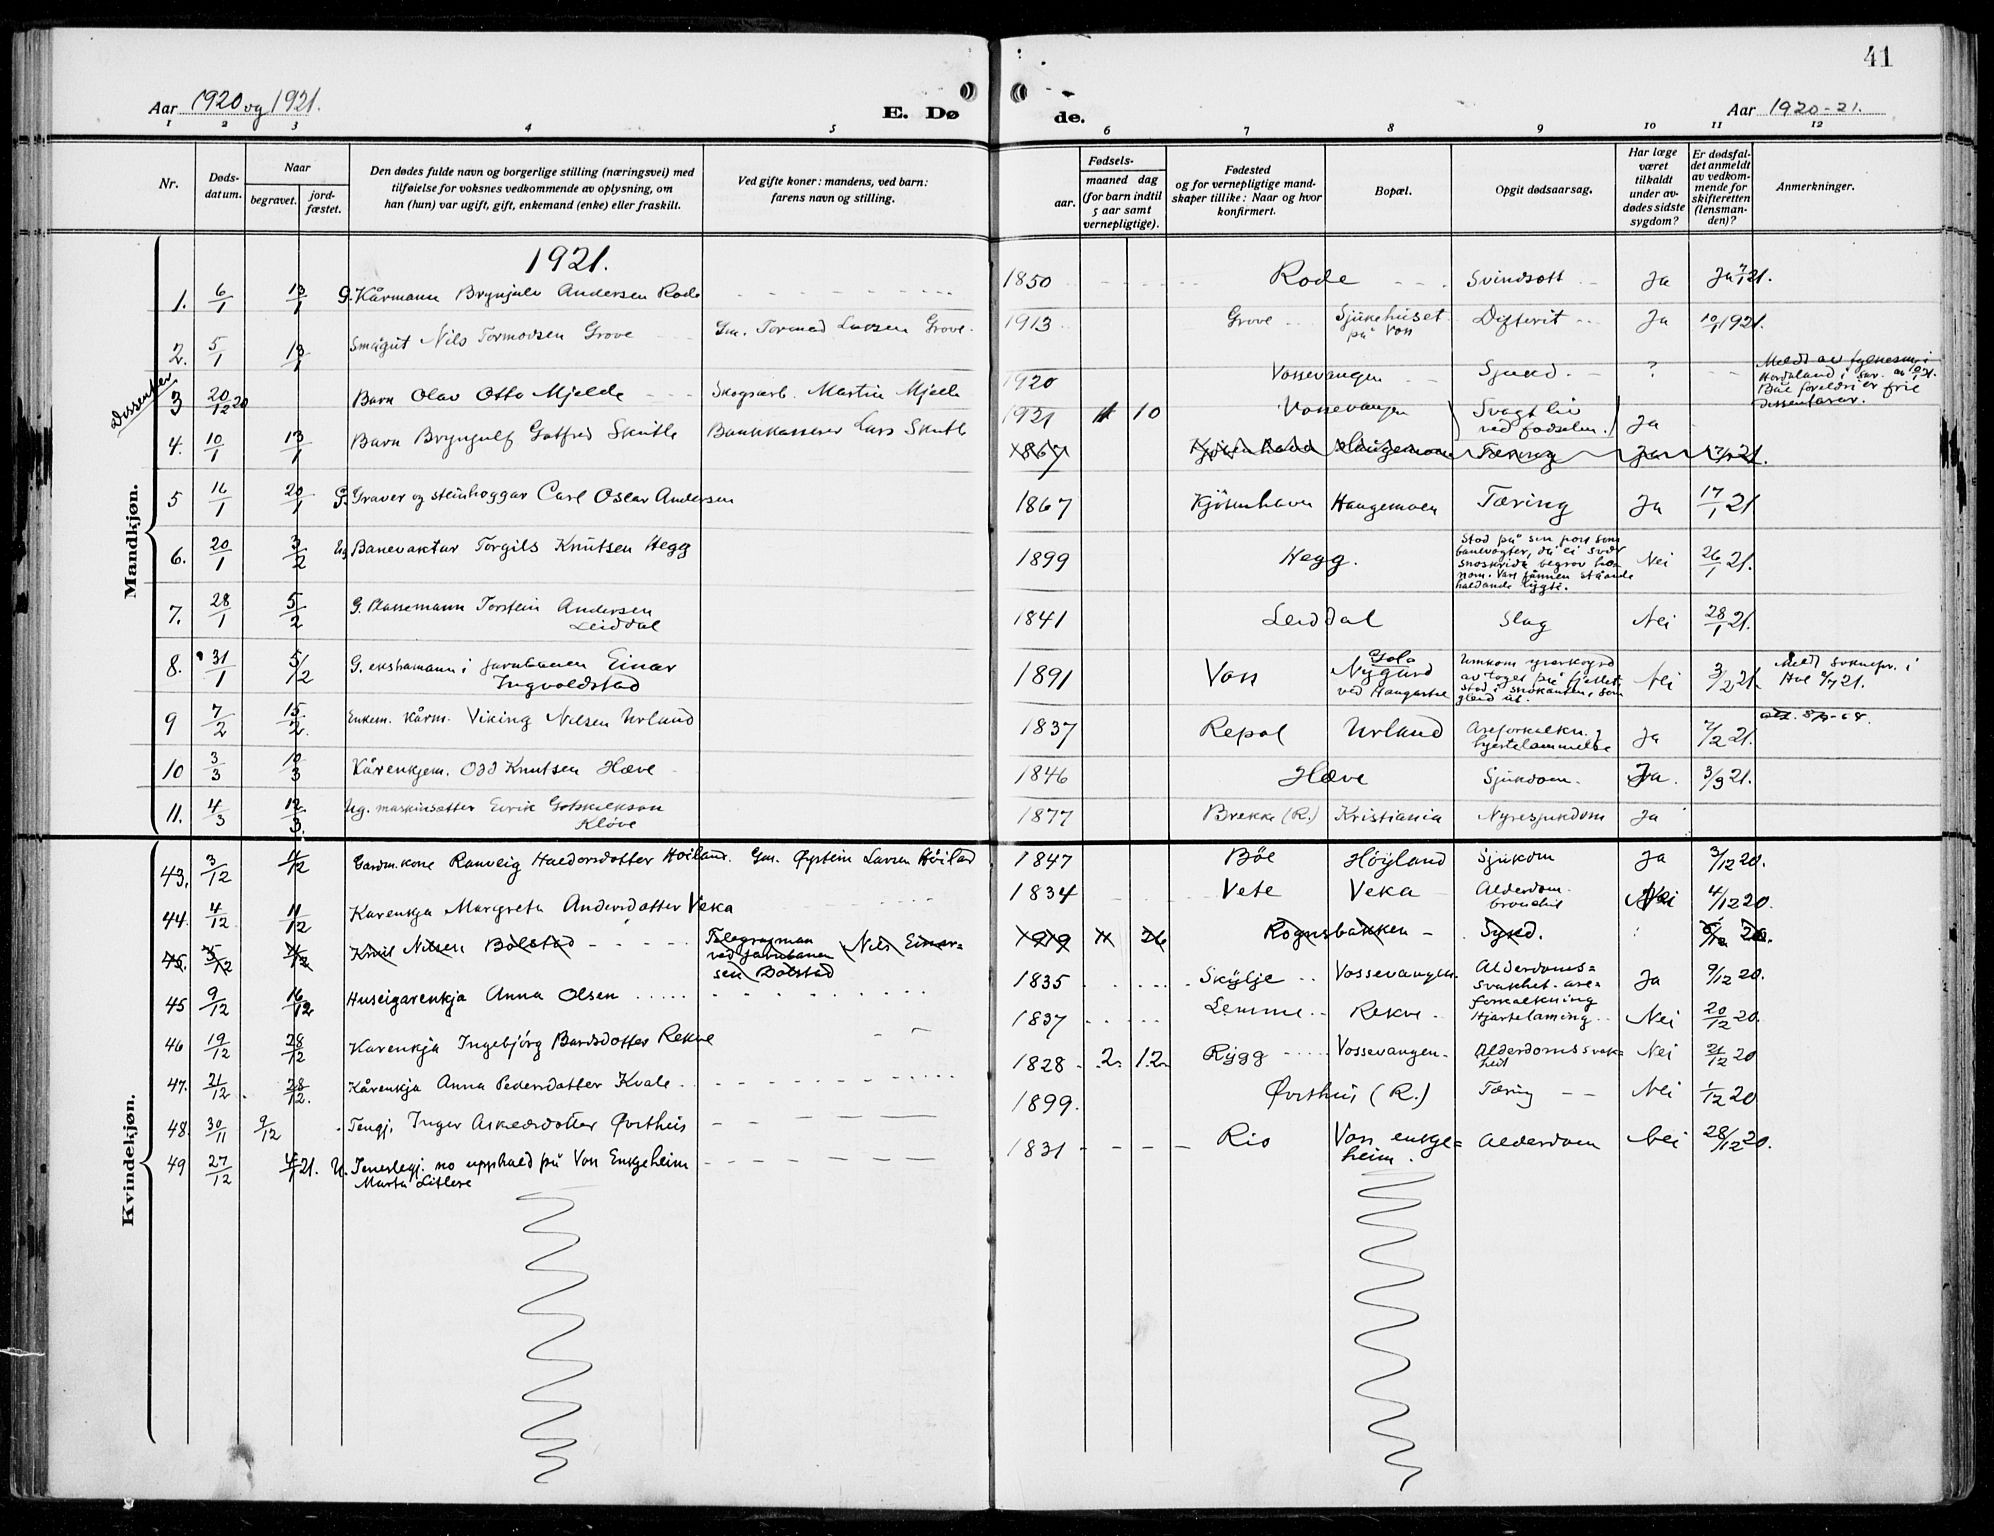 41
Aar 1920 og 1921.
E. Dø
de.
Aar 1920-21.
1 2 3 4 5 6 7 8 9 10 11 12
Nr.
Døds-
datum.
Naar
begravet.
jord-
fæstet.
Den dødes fulde navn og borgerlige stilling (næringsvei) med
tilføielse for voksnes vedkommende av oplysning, om
han (hun) var ugift, gift, enkemand (enke) eller fraskilt.
Ved gifte koner: mandens, ved barn:
farens navn og stilling.
Fødsels-
aar.
maaned dag
(for barn indtil
5 aar samt
vernepligtige).
Fødested
og for vernepligtige mand-
skaper tillike: Naar og hvor
konfirmert.
Bopæl.
Opgit dødsaarsag.
Har læge
været
tilkaldt
under av-
dødes sidste
sygdom?
Er dødsfal-
det anmeldt
av vedkom-
mende for
skifteretten
(lensman-
den)?
Anmerkninger.
Mandkjøn.
1921.
1. 6/1 13/1 G. Kårmann Brynjulv Andersen Rode 1850 Rode Svindsott Ja Ja 7/1 21.
2. 5/1 13/1 Smågut Nils Tormodsen Grove Gm. Tormod Larsen Grove. 1913 Grove Sjukehuset på Voss Difterit Ja 10/1 1921.
Dissenter
3 20/12 20 Barn Olav Otto Mjelde Skogsarb. Martin Mjelde 1920 Vossevangen Sjukd. ?
Meldt av fylkesm. i
Hordaland i skr. av 10/1 21.
Båe foreldri er frie
dissentarar.
4. 10/1 13/1 Barn Bryngulf Gotfred Skutle Bankkasserer Lars Skutle 1921 1 10 Vossevangen Svagt liv ved fødselen. Ja
1867 Kjøbenhavn Haugemoen Tæring Ja 17/1 21.
5 16/1 20/1 G. Graver og steinhoggar Carl Oscar Andersen 1867 Kjöbenhavn Haugemoen Tæring Ja 17/1 21
6. 20/1 3/2 Ug Banevaktar Torgils Knutsen Hegg 1899 Hegg. Nei 26/1 21.
Stod på sin post som
banevogter, då ei svær
snøskride begrov ho-
nom. Vart funnen ståande
haldande lygti.
7. 28/1 5/2 G. Plassemann Torstein Andersen
Leiddal 1841 Leiddal Slag Nei 28/1 21.
8. 31/1 5/2 G. ekstramann i jarnbanen Einar
Ingvoldstad 1891 Voss Gol. Nygård ved Haugastøl Nei 3/2 21.
Umkom
av toget på fjellet,
stod i snøkanten, som
gleid ut.
Meldt soknepr. i
Hol 8/7 21.
9 7/2 15/2. Enkem. Kårm. Viking Nilsen Urland 1837 Repal Urland Areforkalkn. hjertelammelse Ja 7/2 21.
10 3/3 10/3 Kårenkjem. Odd Knutsen Hæve 1846 Hæve Sjukdom. Ja. 3/3 21.
11. 4/3 12/3. Ug. maskinsetter Eirik Gotskalkson
Kløve 1877 Brekke (R.) Kristiania Nyresjukdom Ja
Kvindekjøn.
43. 3/12 11/12 Gardm.kone Ranveig Haldorsdotter Höiland. Gm. Øystein Larsen Höiland 1847 Böe Höyland Sjukdom Ja 3/12 20.
44. 4/12 11/12 Kårenkja Margreta Andersdotter Veka 1834 Vete Veka Alderdom. Nei 4/12 20.
45. 5/12 11/12 Knut Nilsen Bolstad Telegrafman
ved jarnbanen Nils Einar=
sen Bolstad 1919 11 26 Rognsbakken Sjukd. 20.
45 9/12 16/12 Huseigarenkja Anna Olsen 1835 Skylje Vossevangen. Alderdoms=
svakhet. are=
forkalkning Ja 9/12 20.
46 19/12 28/12 Kårenkja Ingebjörg Bårdsdotter Rekve 1837 Lemme Rekve Hjartelaming Nei 20/12 20.
47. 21/12 28/12. Kårenkja Anna Pedersdotter Kvale 1828 2. 12. Rygg Vossevangen Alderdomssvak=
heit Nei 21/12 20
48. 30/11 9/12 Tengj. Inger Askedsdotter Øvsthus 1899. Øvsthus (R.) Tæring Nei 1/12 20
49 27/12 4/1 21. U. Tenestegj. no upphald på Voss Enkjeheim
Marta Litlere 1831 Rio Voss enkje=
heim. Alderdom Nei 28/12 20.